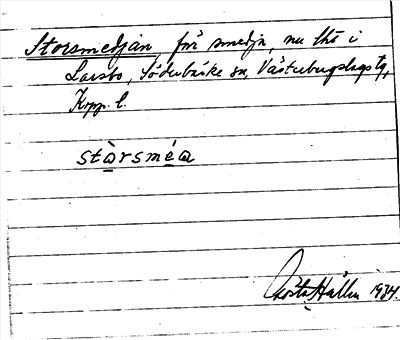 Storsmedjan, för smedja, nu lht i
Larsbo, Söderbärke sn, Västerbergslags tg,
Kopp. l.
stårsméa
Gösta Hallin 1934.